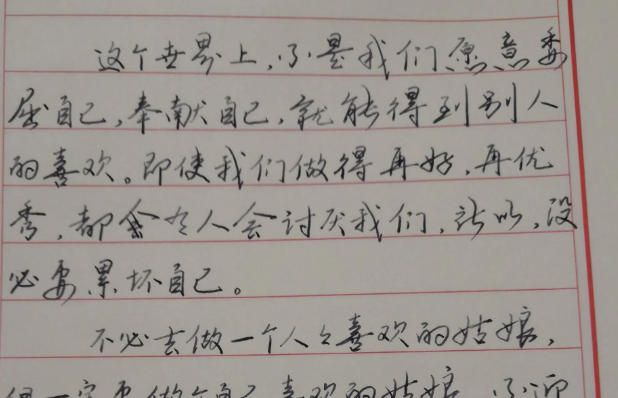 这个世界上,不是我们愿意委
屈自己,奉献自己,就能得到别人
的喜欢。即使我们做得再好,再优
秀,都会有人会讨厌我们,所以,没
必要累坏自己。
不必去做一个人人喜欢的姑娘,
但一定要做个自己喜欢的姑娘,不迎